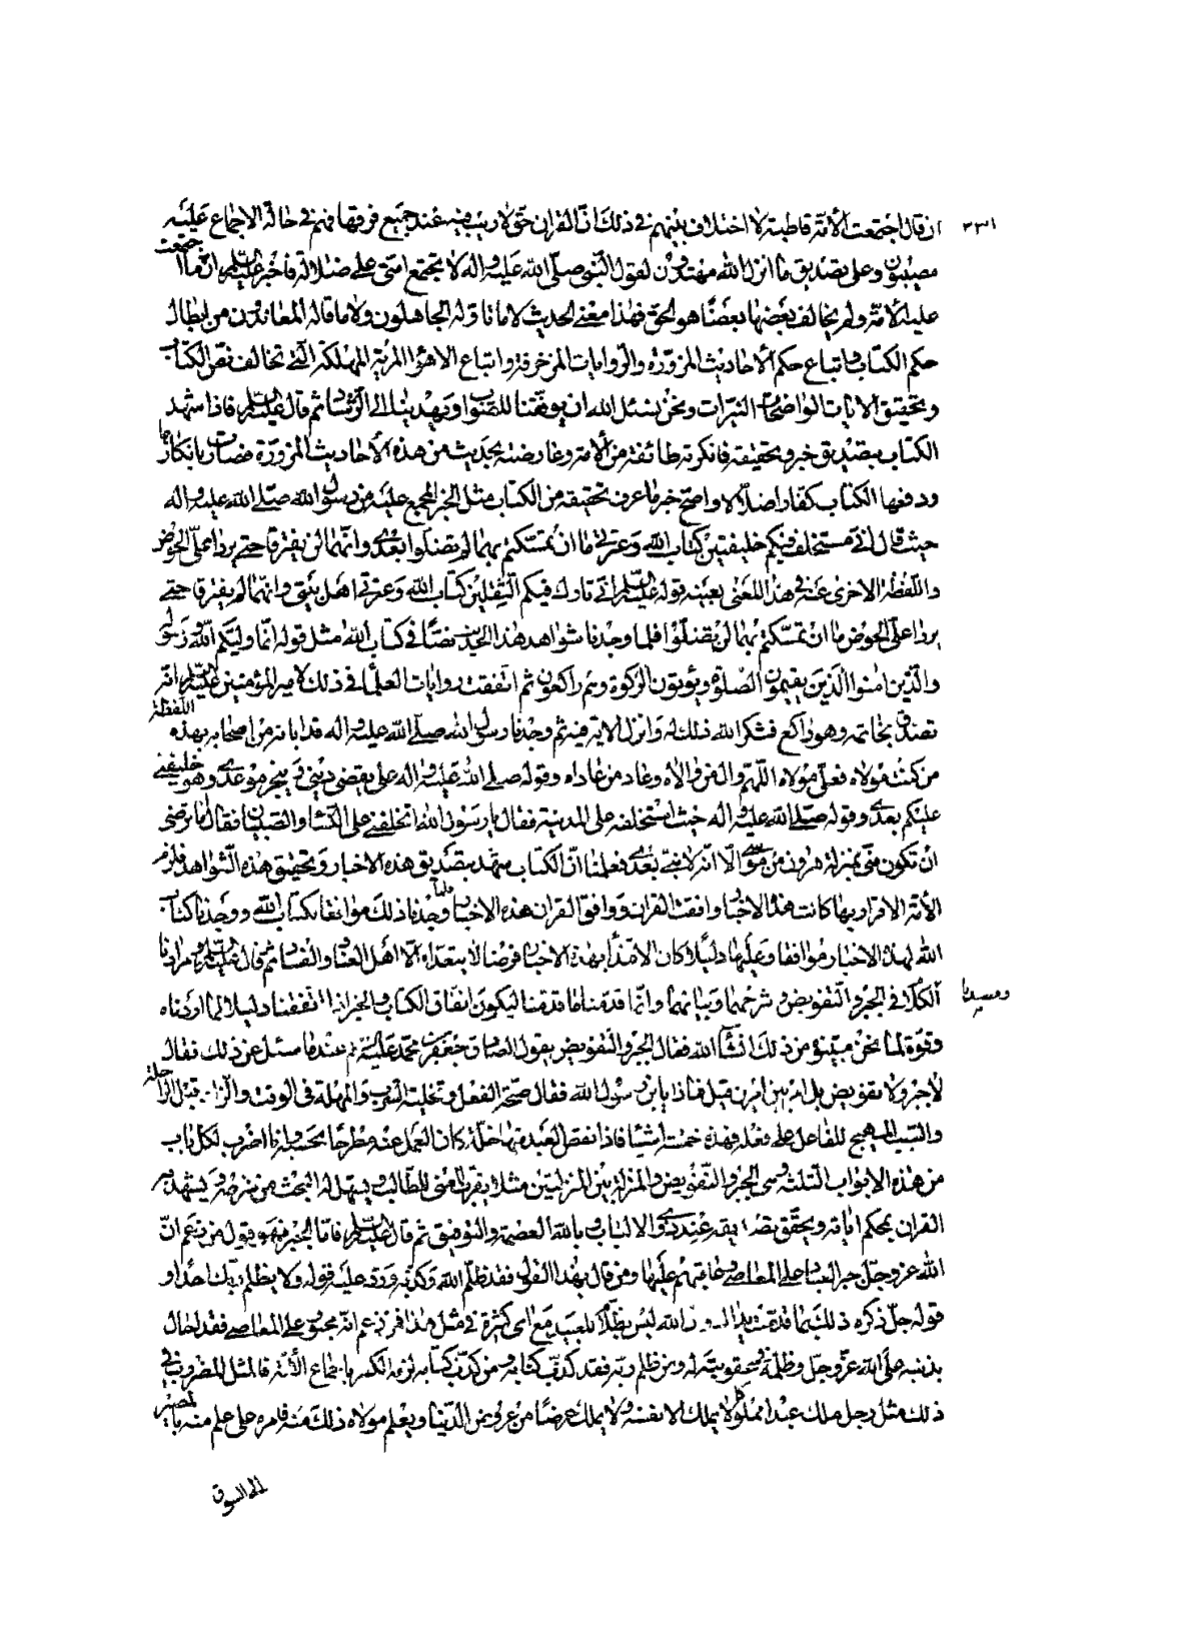 ان قال اجتمعت الأمة قاطبة لا اختلاف بينهم في ذلك ان القران حق لا ريب فيه عند جميع فرقها فهم في حالة الاجماع عليه
مصيبون وعلى تصديق ما انزل الله مهتدون لقول النبي صلى الله عليه واله لا تجتمع امتي على ضلالة فاخبر عليه السلام ان ما اجتمعت
عليه الأمة ولم يخالف بعضها بعضا هو الحق فهذا معنى الحديث لا ما تاوله الجاهلون ولا ما قاله المعاندون من ابطال
حكم الكتاب واتباع حكم الأحاديث المزورة والروايات المزخرفة واتباع الاهواء المردية المهلكة التي تخالف نص الكتاب
وتحقيق الايات الواضحات النيرات ونحن نسئل الله ان يوفقنا للصواب ويهدينا الى الرشاد ثم قال عليه السلام فاذا شهد
الكتاب بتصديق خبر وتحقيقه فانكرته طائفة من الأمة وعارضته بحديث من هذه الأحاديث المزورة فصارت بانكارها
ودفعها الكتاب كفارا ضلالا واصح خبر ما عرف تحقيقه من الكتاب مثل الخبر المجمع عليه من رسول الله صلى الله عليه واله
حيث قال اني مستخلف فيكم خليفتين كتاب الله وعترتي ما ان تمسكتم بهما لم تضلوا بعدي وانهما لن يفترقا حتى يردا علي الحوض
واللفظة الاخرى عنه في هذا المعنى بعينه قوله عليه السلام اني تارك فيكم الثقلين كتاب الله وعترتي اهل بيتي وانهما لم يفترقا حتى
يردا علي الحوض ما ان تمسكتم بهما لن تضلوا فلما وجدنا شواهد هذا الحديث نصا في كتاب الله مثل قوله انما وليكم الله ورسوله
والذين امنوا الذين يقيمون الصلوة ويؤتون الزكوة وهم راكعون ثم اتفقت روايات العلماء في ذلك لامير المؤمنين عليه السلام انه
تصدق بخاتمه وهو راكع فشكر الله ذلك له وانزل الاية فيه ثم وجدنا رسول الله صلى الله عليه واله قد ابانه من اصحابه بهذه اللفظة
من كنت مولاه فعلي مولاه اللهم وال من والاه وعاد من عاداه وقوله صلى الله عليه واله علي يقضي ديني وينجز موعدي وهو خليفتي
عليكم بعدي وقوله صلى الله عليه واله حيث استخلفه على المدينة فقال يا رسول الله اتخلفني على النساء والصبيان فقال اما ترضى
ان تكون مني بمنزلة هرون من موسى الا انه لا نبي بعدي فعلمنا ان الكتاب شهد بتصديق هذه الاخبار وتحقيق هذه الشواهد فلزم
الأمة الاقرار بها كانت هذه الاخبار وافقت القران ووافق القران هذه الاخبار فلما وجدنا ذلك موافقا لكتاب الله ووجدنا كتاب
الله لهذه الاخبار موافقا وعليها دليلا كان الاقتداء بهذه الاخبار فرضا لا يتعداه الا اهل العناد والفساد ثم قال عليه السلام ومرادنا
الكلام في الجبر والتفويض وشرحهما وبيانهما وانما قدمنا ما قدمنا ليكون اتفاق الكتاب والخبر اذا اتفقنا دليلا لما اوردناه
وقوة لما نحن مبينوه من ذلك انشاء الله فقال الجبر والتفويض بقول الصادق جعفر بن محمد عليه السلام عندما سئل عن ذلك فقال
لا جبر ولا تفويض بل امر بين امرين قيل فماذا يابن رسول الله فقال صحة الفعل وتخلية السرب والمهلة في الوقت والزاد قبل الراحلة
والسبب المهيج للفاعل على فعله فهذه خمسة اشياء فاذا نقص العبد منها خلة كان العمل عنه مطرحا بحسبه وانا اضرب لكل باب
من هذه الابواب الثلثة وهي الجبر والتفويض والمنزلة بين المنزلتين مثلا يقرب المعنى للطالب ويسهل له البحث من شرحه ويشهد به
القران بمحكم اياته ويحقق تصديقه عند ذوي الالباب وبالله العصمة والتوفيق ثم قال عليه السلام فاما الجبر فهو قول من زعم ان
الله عز وجل جبر العباد على المعاصي وعاقبهم عليها ومن قال بهذا القول فقد ظلم الله وكذبه ورد عليه قوله ولا يظلم ربك احدا و
قوله جل ذكره ذلك بما قدمت يداك وان الله ليس بظلام للعبيد مع اي كثيرة في مثل هذا فمن زعم انه مجبور على المعاصي فقد احال
بذنبه على الله عز وجل وظلمه في عقوبته له ومن ظلم ربه فقد كذب كتابه ومن كذب كتابه لزمه الكفر باجماع الأمة فالمثل المضروب في
ذلك مثل رجل ملك عبدا مملوكا لا يملك الا نفسه ولا يملك عرضا من عروض الدنيا ويعلم مولاه ذلك منه فامره على علم منه بالمصير
الى السوق